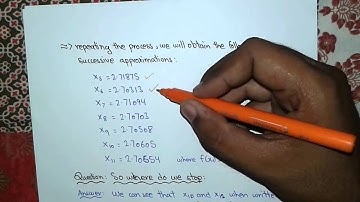 => repeating the process, we will obtain the
successive approximations:
x5 = 2.71875 ✓
x6 = 2.70313 ✓
x7 = 2.71094
x8 = 2.70703
x9 = 2.70508
x10 = 2.70605
x11 = 2.70654 where
Question: So where do we stop:
Answer: We can see that x10 and x11 when